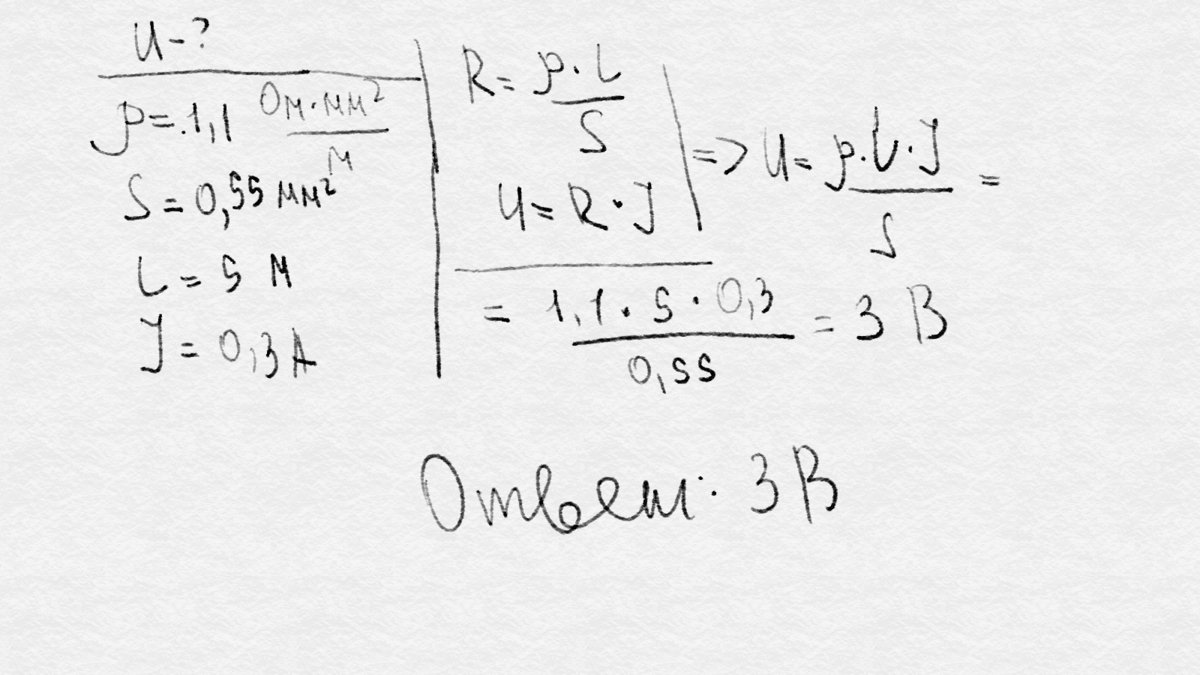 U - ?
ρ = 1,1 Ом·мм²/м
S = 0,55 мм²
L = 5 м
J = 0,3 А
R = ρ·L/S
U = R·J
=> U = ρ·L·J/S =
= 1,1·5·0,3/0,55 = 3 В
Ответ: 3 В